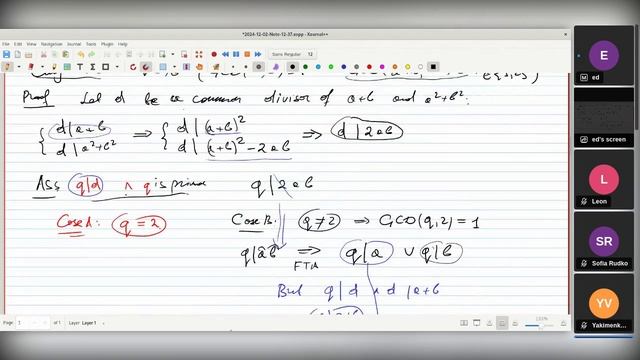 *2024-12-02-Note-12-37.xopp - Xournal++
File Edit View Navigation Journal Tools Plugin Help
Sans Regular 12
Proof Let d be a common divisor of a+b and a²+b²:
{ d | a+b
d | a²+b² ⇒ { d | (a+b)²
d | (a+b)² - 2ab ⇒ d | 2ab
Ass q|d ∧ q is prime q | 2ab
Case A: q = 2 Case B: q ≠ 2 ⇒ GCD(q,2) = 1
q | ab ⇒ q|a ∨ q|b
FTA
But q | d ∧ d | a+b
Page 1 of 1 Layer: Layer 1
E
ed
ed's screen
L
Leon
SR
Sofia Rudko
YV
Yakimenk...